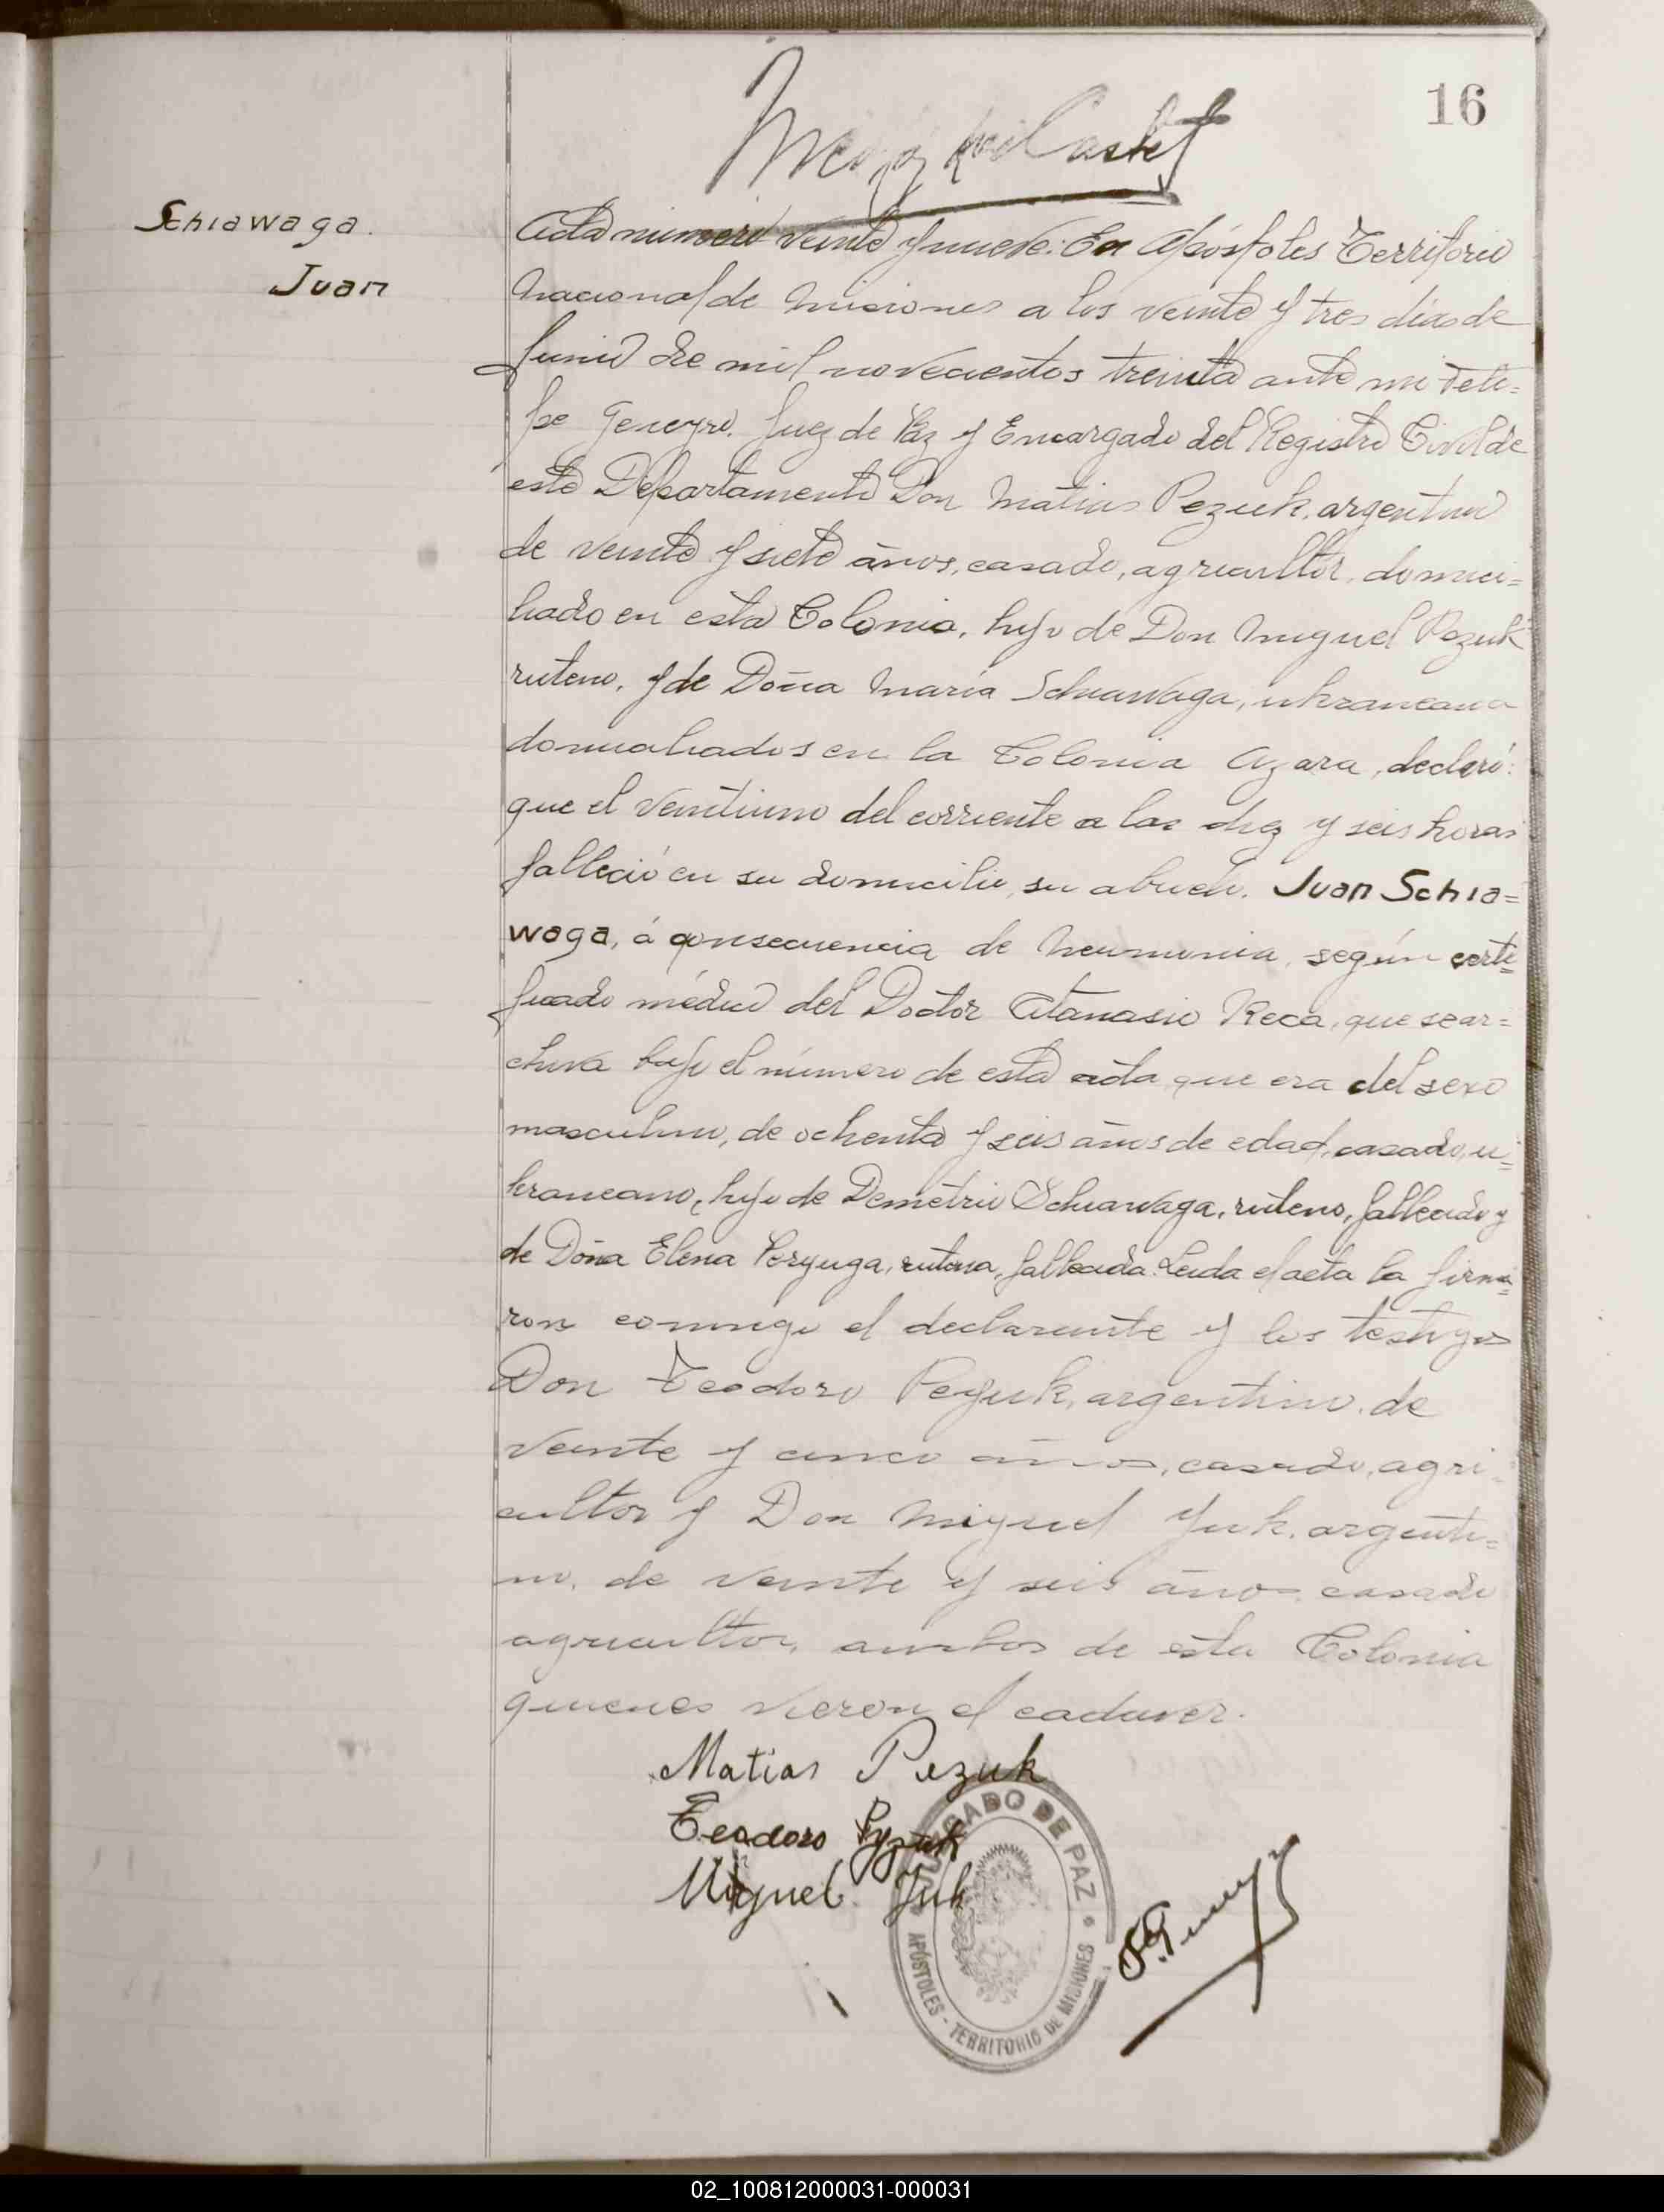 16
Schiawaga.
Juan
Acta numero veinte y nueve: En Apóstoles Territorio
Nacional de Misiones a los veinte y tres dias de
Junio de mil novecientos treinta ante mi Feli=
pe Geneyro, Juez de Paz y Encargado del Registro Civil de
este Departamento Don Matias Pezuk, argentino
de veinte y siete años, casado, agricultor, domici=
liado en esta Colonia, hijo de Don Miguel Pezuk
ruteno, y de Doña Maria Schiawaga, ukraneana
domiciliados en la Colonia Azara, declaró:
que el veintiuno del corriente a las diez y seis horas
falleció en su domicilio, su abuelo, Juan Schia=
waga, á consecuencia de Neumonia, según certi=
ficado médico del Doctor Atanasio Reca, que se ar=
chiva bajo el número de esta acta que era del sexo
masculino, de ochenta y seis años de edad, casado, u=
kraneano, hijo de Demetrio Schiawaga, ruteno, fallecido y
de Doña Elena, rutena, fallecida. Leida el acta la firma=
ron conmigo el declarante y los testigos
Don Teodoro Pezuk, argentino, de
veinte y cinco años, casado, agri=
cultor y Don Miguel Juk, argenti=
no, de veinte y seis años casado
agricultor, ambos de esta Colonia
quienes vieron el cadaver.
Matias Pezuk
Teodoro Pyzuk
Miguel Juk
JUZGADO DE PAZ
APÓSTOLES - TERRITORIO DE MISIONES
02_100812000031-000031